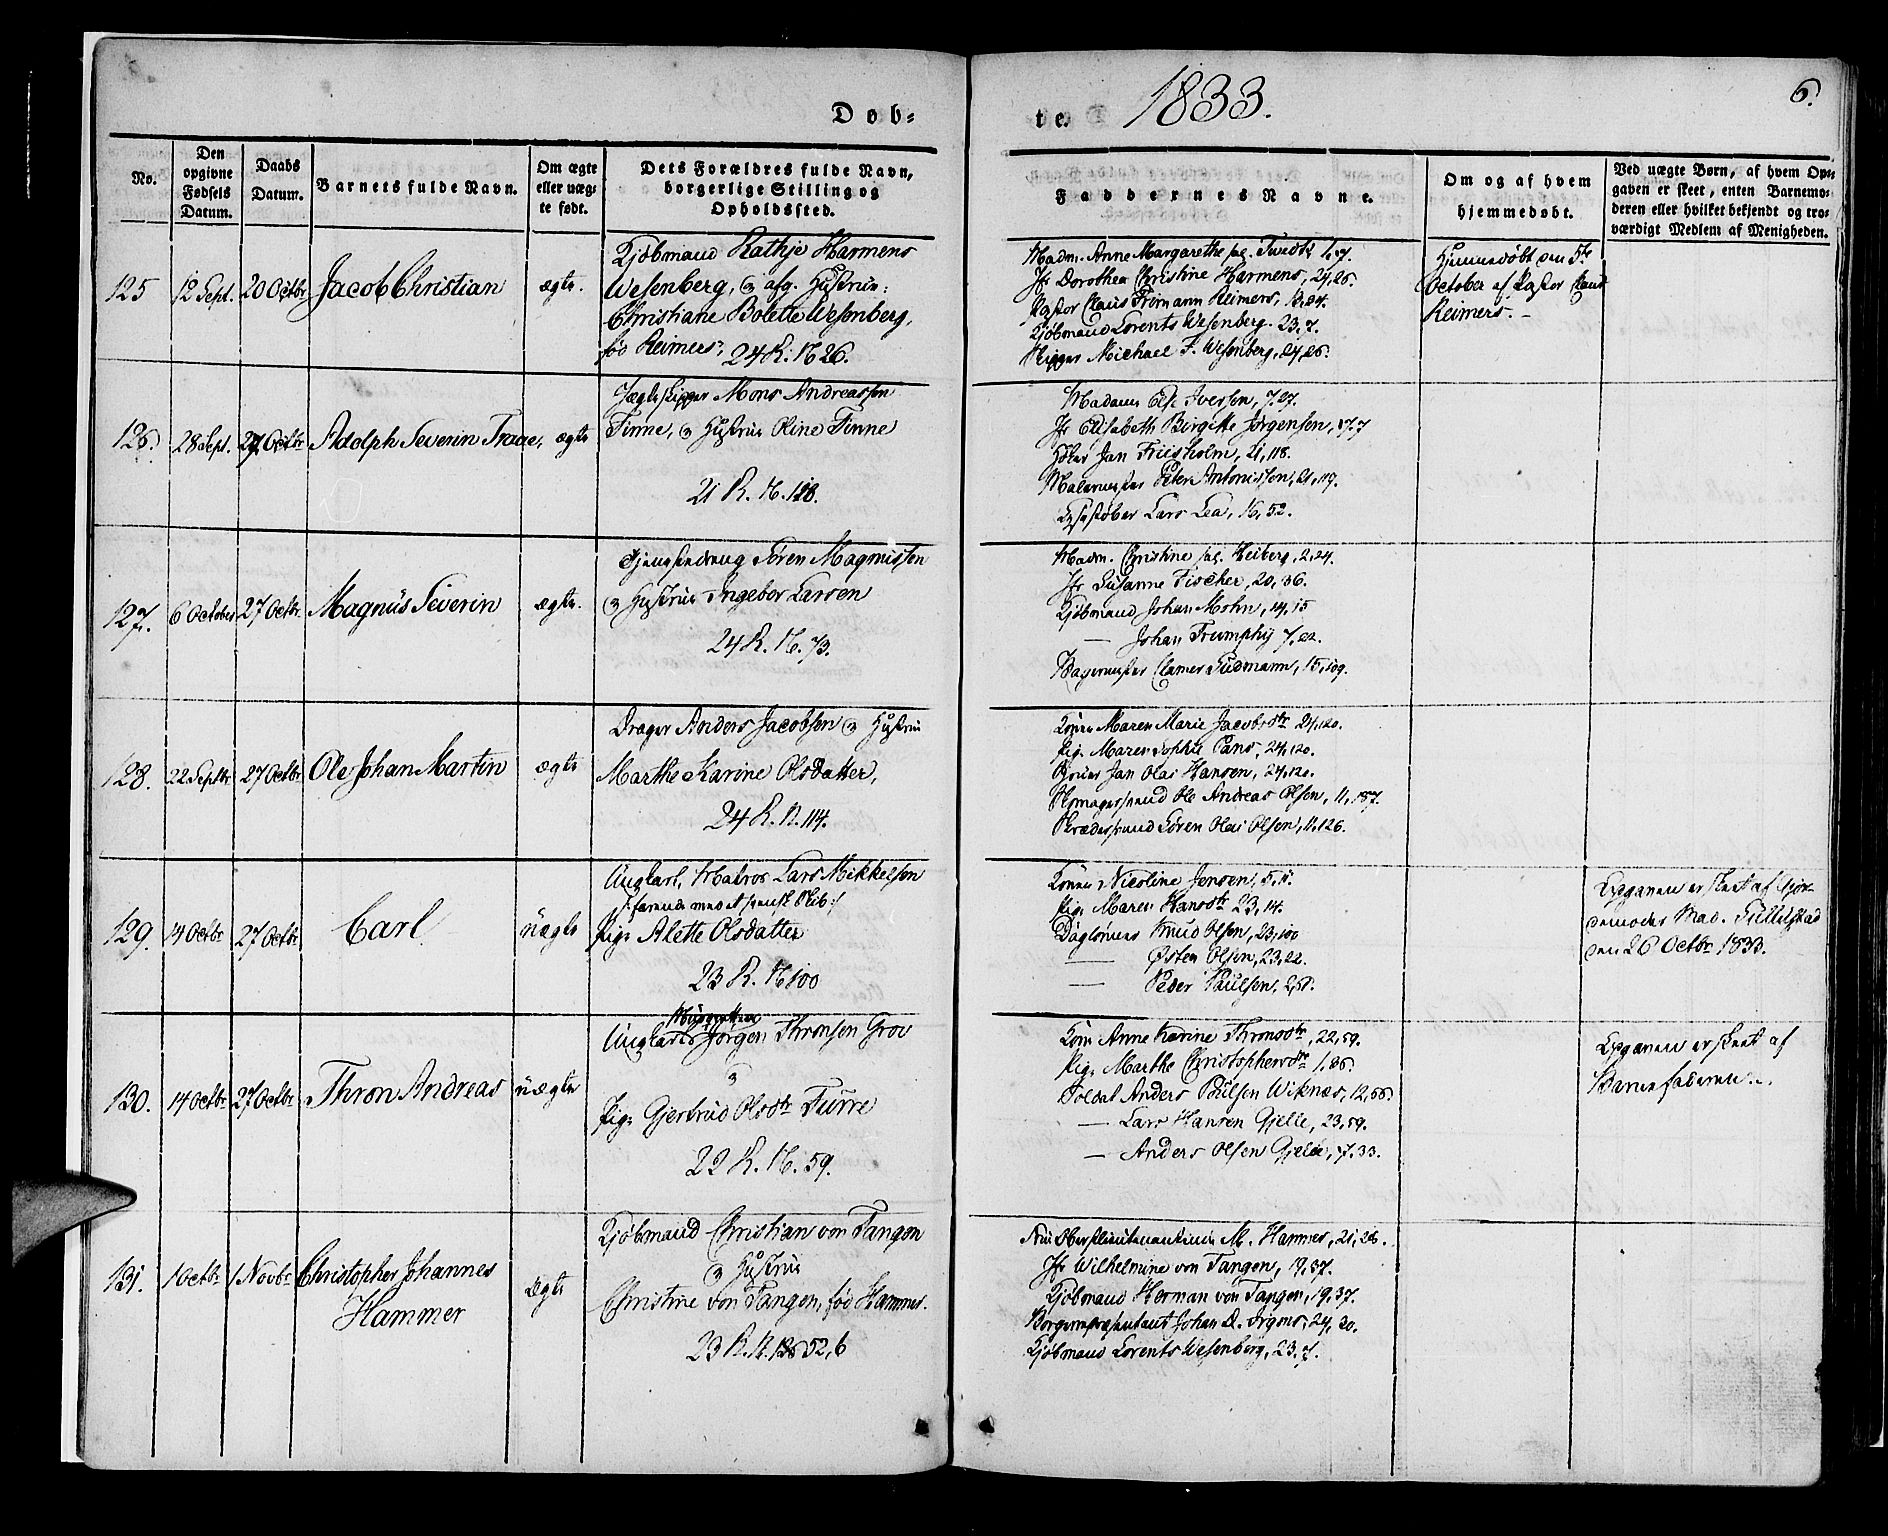 Døb-
te. 1833.
6.
No.
Den
opgivne
Fødsels
Datum.
Daabs
Datum.
Barnets fulde Navn.
Om ægte
eller uæg-
te født.
Dets Forældres fulde Navn,
borgerlige Stilling og
Opholdssted.
Faddernes Navne.
Om og af hvem
hjemmedøbt.
Ved uægte Børn, af hvem Op-
gaven er skeet, enten Barnemo-
deren eller hvilket bekjendt og tro-
værdigt Medlem af Menigheden.
125 12 Sept. 20 Octbr Jacob Christian ægte.
Kjøbmand Rathje Harmens
Wesenberg, og afg. Hüstrüe:
Christiane Bolette Wesenberg,
fød Reimers, 24 R. N 26.
Madm. Anne Margarethe sal.
Jfr Dorothea Christine Harmens, 24,26.
Pastor Claus Frimann Reimers,
Kjøbmand Lorents Wesenberg. 23,7.
Skipper Michael F. Wesenberg, 24,26.
Hjemmedøbt den 5te
October af Pastor Claus
Reimers.
126. 28 Sept. 27 Octbr Adolph Severin Traae, ægte
Jægteskipper Mons Andreassen
Finne, og Hüstrüe Oline Finne
21 R. N. 118.
Madame Else Iversen, 7.27.
Jfr Elisabeth Birgitte Jørgensen, 17.7
Jan Friisholm, 21,118.
Malermester Peter Antonissen, 21,119.
Lars Lea, 16,52.
127. 6 October 27 Octbr. Magnüs Severin ægte.
Tjenstedreng Søren Magnussen
og Hüstrüe Ingebor Larsen
24 R. N. 73.
Madm. Christine sal. Heiberg, 2,24.
Jfr Susanne Fischer, 20,36.
Kjøbmand Johan Mohn, 14,15
— Johan Trumphy 7,22.
Bagermester Clamer Südmann, 15,109.
128. 22 Septbr 27 Octbr Ole Johan Martin ægte
Drager Anders Jacobsen og Hüstrüe
Marthe Karine Olsdatter,
24 R. N. 114.
Konen Maren Marie Jacobsdtr 24,120.
Pige Maren Sophie Pans, 24,120.
Jan Olai Hansen, 24,120.
Ole Andreas Olsen, 11,157.
Skrædersvend Søren Olai Olsen, 11.126.
129. 14 Octbr 27 Octbr Carl uægte
Ungkarl, Matros Lars Mikkelsen
/: farende med et spensk Skib:/
Pige Alette Olsdatter
23 R. N 100
Konen Nicoline Jensen, 5,5.
Pige Maren Hansdtr 23,14.
Daglønner Knud Olsen, 23,100
— Østen Olsen, 23,22.
— Peder Paulsen,
Opgaven er skeet af Gjor-
demoder Mad. Tillelstad
den 26 Octbr 1833.
130. 14 Octbr 27 Octbr Thron Andreas uægte
Ungkarl Jørgen Thronsen Grov
og
Pige Gjertrüd Olsdtr Fürre
22 R. N. 59.
Kone Anne Karine Thronsdtr, 22,59.
Pige Marthe Christophersdtr 1,86.
Soldat Anders Poülsen Wiknæs, 12,56.
— Lars Hansen Gjelle, 23,59.
— Anders Olsen Gjelle, 7.33.
Opgaven er skeet af
Barnefaderen.
131. 1 Octbr 1 Novbr Christopher Johannes
Hammer
Ægte
Kjøbmand Christian von Tangen
og Hüstrüe
Christine von Tangen, fød Hammer.
23 R. N. 52,6
Frue Oberstlieutenantinde M. Hammer, 21,26.
Jfr Wilhelmine von Tangen, 19,37.
Kjøbmand Herman von Tangen, 19,37.
Borgerrepræsentant Johan D. Irgens, 24,20.
Kjøbmand Lorents Wesenberg, 23.7.